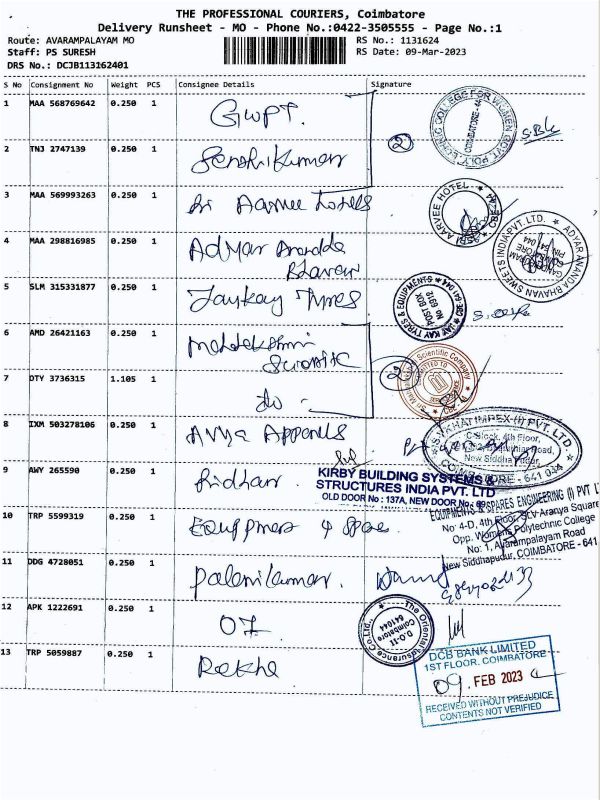 THE PROFESSIONAL COURIERS, Coimbatore
Delivery Runsheet - MO - Phone No.:0422-3505555 - Page No.:1
Route: AVARAMPALAYAM MO
RS No.: 1131624
Staff: PS SURESH
RS Date: 09-Mar-2023
DRS No.: DCJB113162401
S No Consignment No Weight PCS Consignee Details Signature
1 MAA 568769642 0.250 1 GWPT.
2 TNJ 2747139 0.250 1 Senthilkumar
2
COIMBATORE-44
3 MAA 569993263 0.250 1 Sri Aarvee Hotels
AARVEE HOTEL
4 MAA 298816985 0.250 1 Adyar Anandha Bhavan
ADYAR ANANDA BHAVAN SWEETS INDIA PVT. LTD.
5 SLM 315331877 0.250 1 Jaykay Tyres
JAY KAY TYRES & EQUIPMENTS
POST BOX
No 6912
6 AMD 26421163 0.250 1 Mahalakshmi Scientific
7 OTY 3736315 1.105 1 do
2
Scientific Company
8 IXM 503278106 0.250 1 Avya Apparels
S.V.KHATIMPEX-(I) PVT. LTD.
C-Block, 4th Floor,
New Siddha Pudur,
COIMBATORE - 641 044
9 AWY 265590 0.250 1 Ridhan
KIRBY BUILDING SYSTEMS &
STRUCTURES INDIA PVT. LTD
OLD DOOR No : 137A, NEW DOOR No
10 TRP 5599319 0.250 1 Equipment & Spares
EQUIPMENTS & SPARES ENGINEERING (I) PVT L
No: 4-D, 4th Floor, SLV Aranya Square
Opp. Womens Polytechnic College
No: 1, Avarampalayam Road
New Siddhapudur, COIMBATORE - 641
11 DDG 4728051 0.250 1 Palanikumar.
12 APK 1222691 0.250 1 OI
The Oriental Insurance Co.Ltd.,
D.O-11
Coimbatore
641044
13 TRP 5059887 0.250 1 Rekha
DCB BANK LIMITED
1ST FLOOR. COIMBATORE
09 FEB 2023
RECEIVED WITHOUT PREJUDICE
CONTENTS NOT VERIFIED